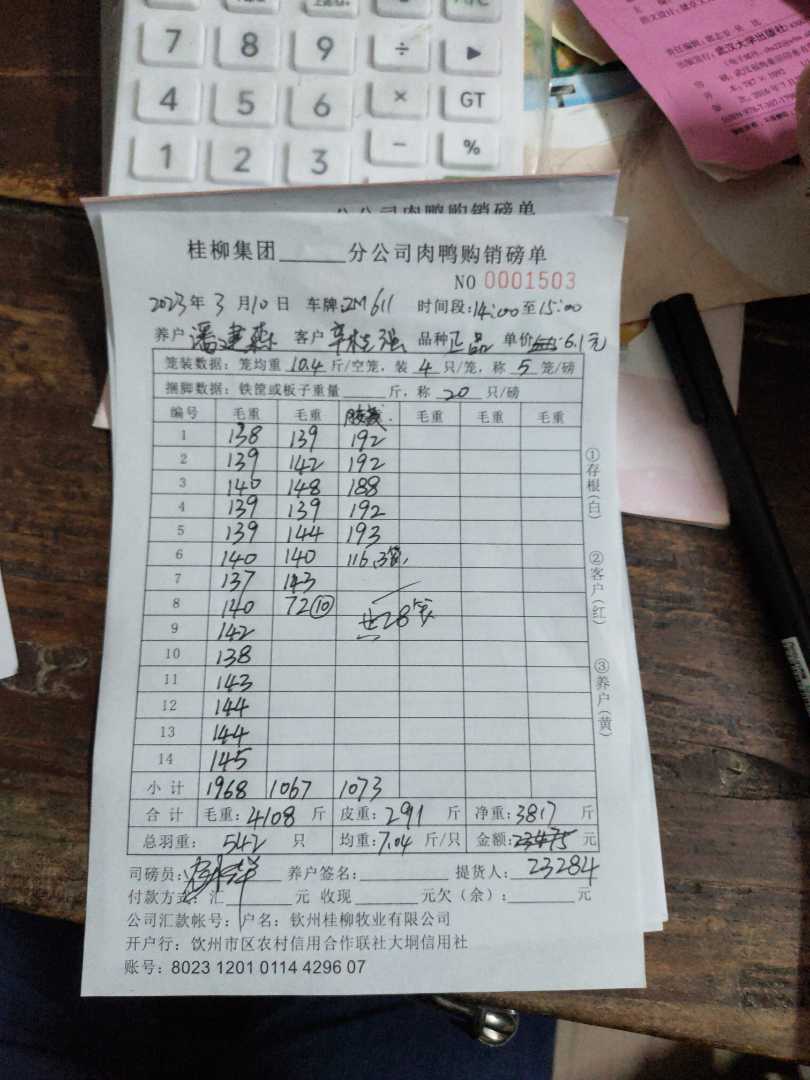 7 8 9 ÷ ▶
4 5 6 × GT
1 2 3 − %
责任编辑
出版发行：武汉大学出版社
分公司肉鸭购销磅单
桂柳集团______分公司肉鸭购销磅单
NO 0001503
2023年 3月10日 车牌:2M611 时间段:14:00至15:00
养户 潘建燊 客户 辛桂强 品种 正品 单价 6.1元
笼装数据: 笼均重 10.4 斤/空笼, 装 4 只/笼, 称 5 笼/磅
捆脚数据: 铁筐或板子重量______斤, 称 20 只/磅
编号 毛重 毛重 毛重 毛重 毛重
1 138 139 192
2 139 142 192
3 140 148 188
4 139 139 192
5 139 144 193
6 140 140 116
7 137 143
8 140 72⑩ 共28
9 142
10 138
11 143
12 144
13 144
14 145
小计 1968 1067 1073
合计 毛重:4108 斤 皮重:291 斤 净重:3817 斤
总羽重: 542 只 均重:7.04 斤/只 金额:23475 元
司磅员: 养户签名:________ 提货人: 23284
付款方式: 汇______元 收现______元欠（余）:______元
公司汇款帐号: 户名: 钦州桂柳牧业有限公司
开户行: 饮州市区农村信用合作联社大垌信用社
账号: 8023 1201 0114 4296 07
①存根(白)
②客户(红)
③养户(黄)